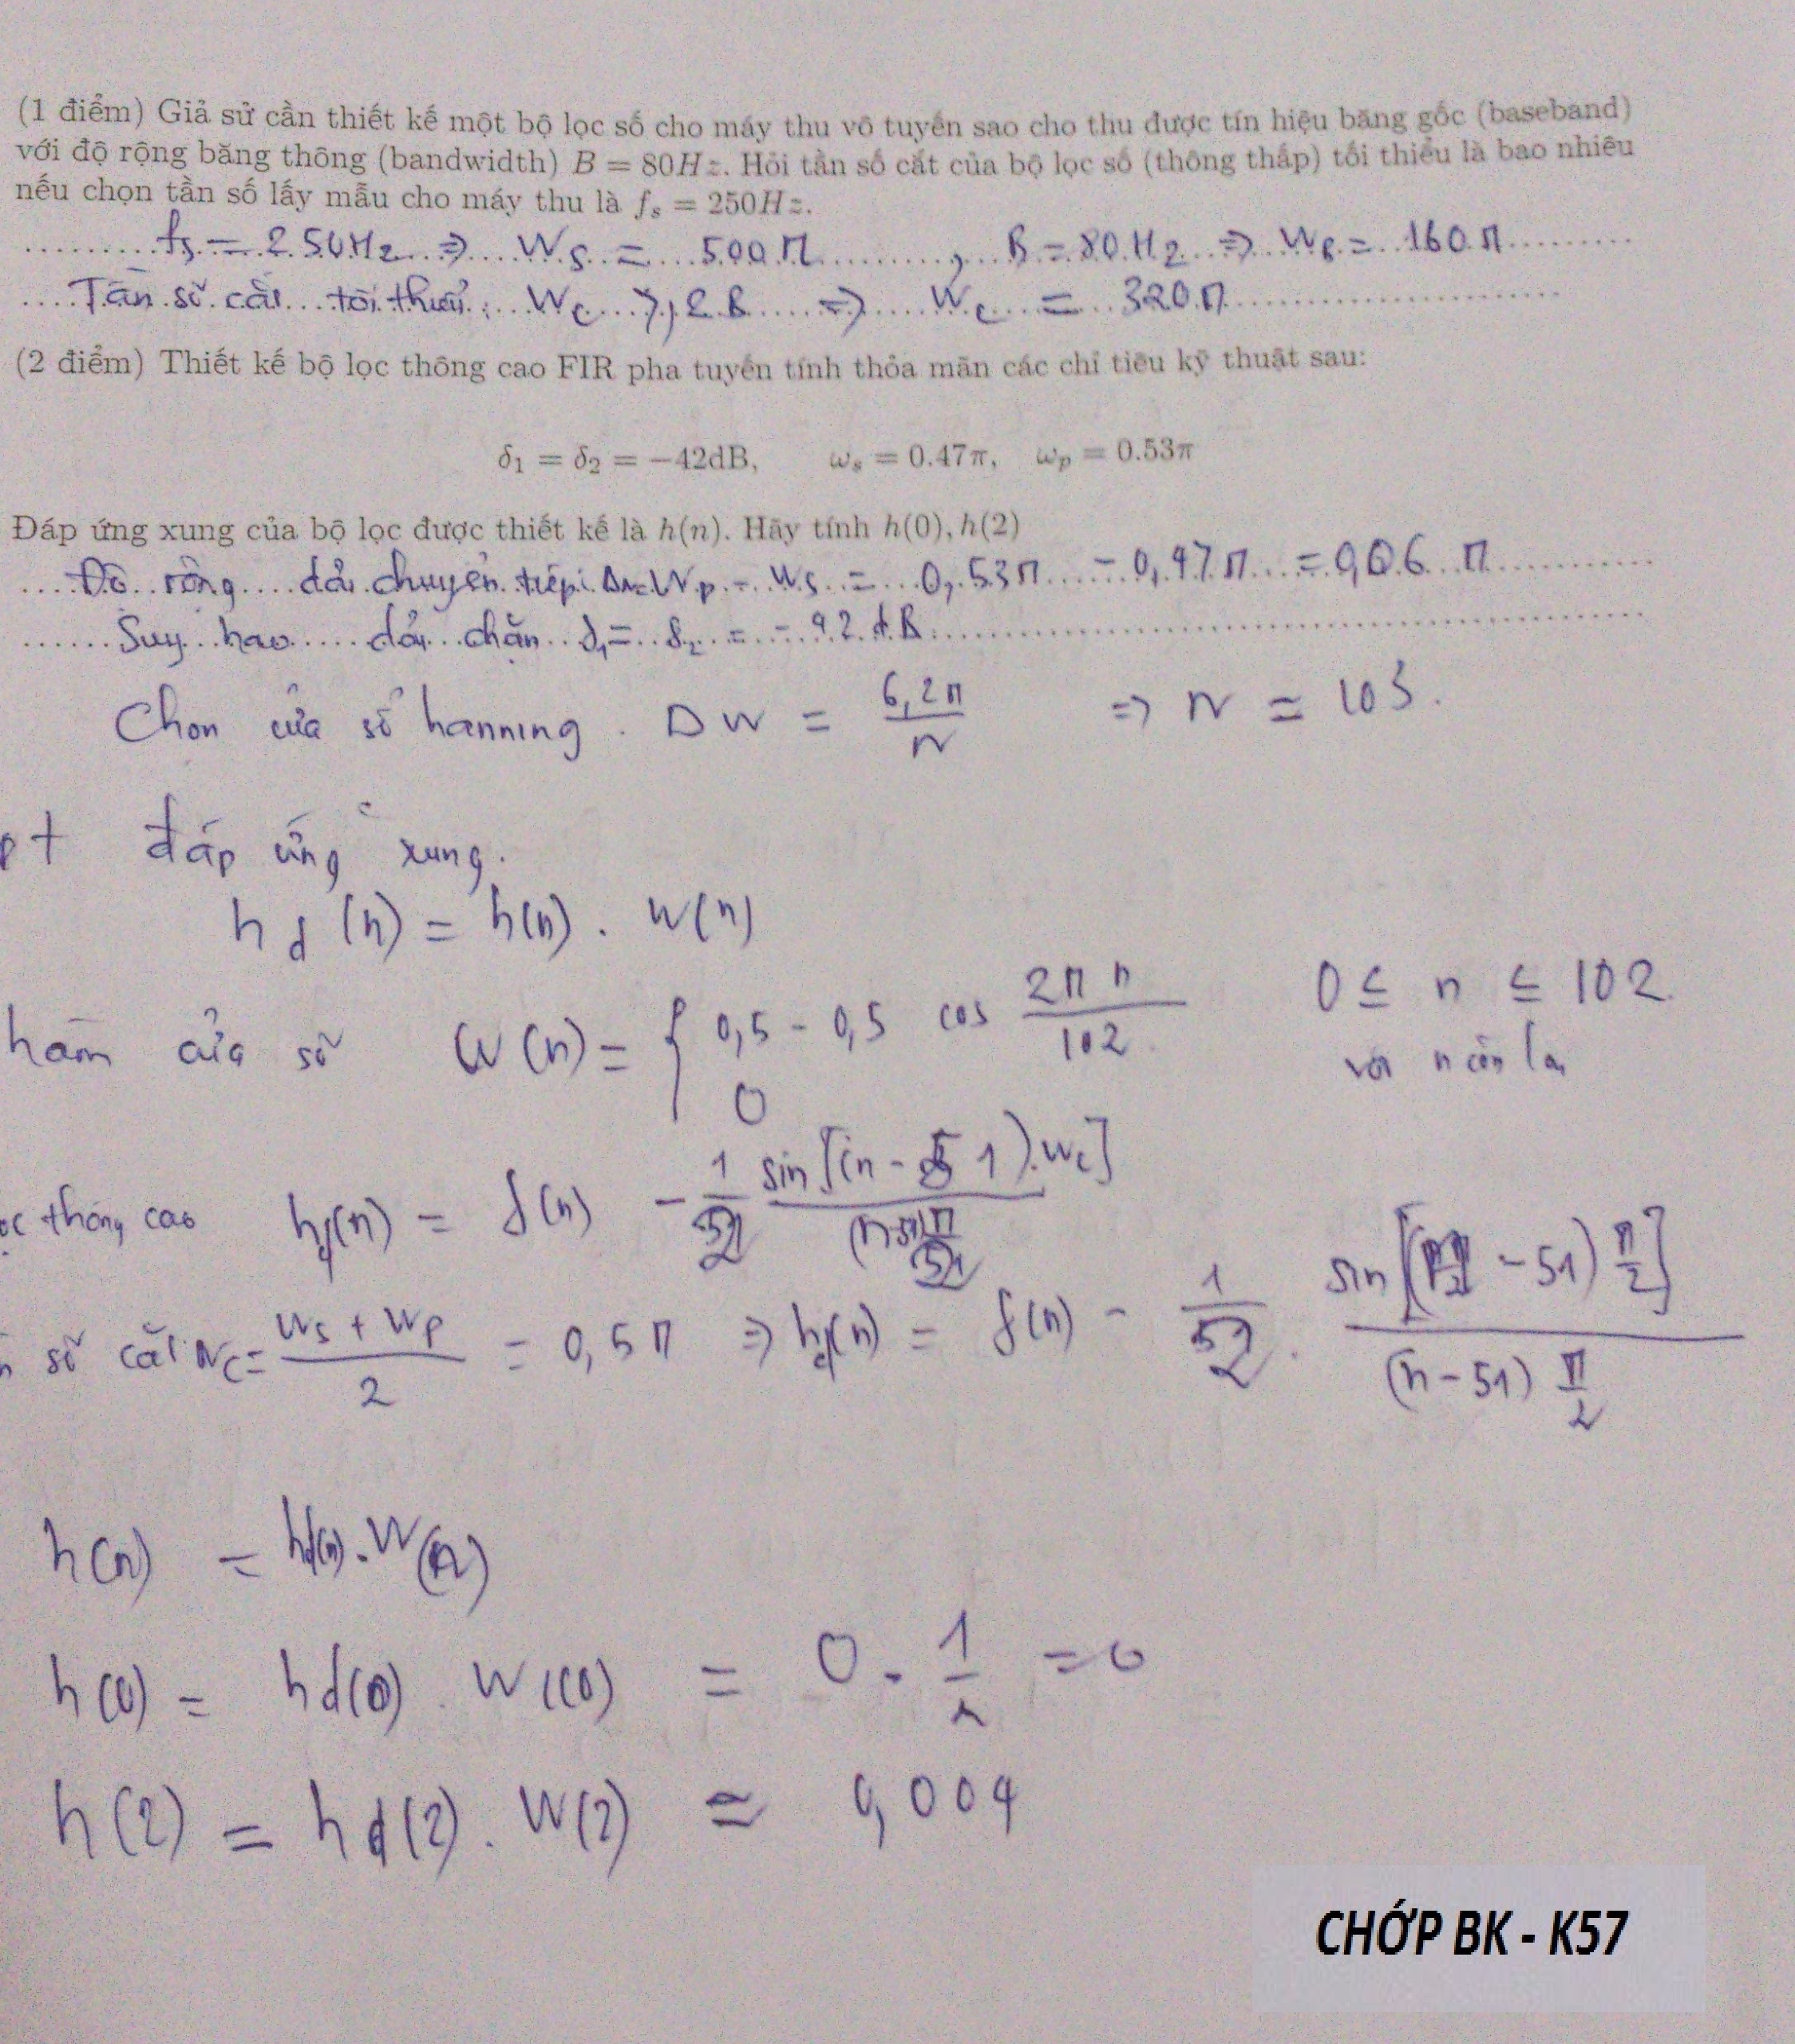 (1 điểm) Giả sử cần thiết kế một bộ lọc số cho máy thu vô tuyến sao cho thu được tín hiệu băng gốc (baseband)
với độ rộng băng thông (bandwidth) B = 80Hz. Hỏi tần số cắt của bộ lọc số (thông thấp) tối thiểu là bao nhiêu
nếu chọn tần số lấy mẫu cho máy thu là fs = 250Hz.
fs = 250Hz => Ws = 500π , B = 80Hz => WB = 160π
Tần số cắt tối thiểu: Wc ≥ 2B => Wc = 320π
(2 điểm) Thiết kế bộ lọc thông cao FIR pha tuyến tính thỏa mãn các chỉ tiêu kỹ thuật sau:
δ1 = δ2 = −42dB, ωs = 0.47π, ωp = 0.53π
Đáp ứng xung của bộ lọc được thiết kế là h(n). Hãy tính h(0), h(2)
Độ rộng dải chuyển tiếp: Δw = Wp - Ws = 0,53π - 0,47π = 0,06π
Suy hao dải chặn δ1 = δ2 = -42dB
Chọn cửa sổ hanning. ΔW = 6,2π/N => N = 103.
pt đáp ứng xung.
hd(n) = h(n) . W(n)
hàm cửa sổ W(n) = { 0,5 - 0,5 cos 2πn/102 0 ≤ n ≤ 102
0 với n còn lại
ọc thông cao hd(n) = δ(n) - 1/2 sin[(n-51).Wc]
số cắt Wc = (Ws + Wp)/2 = 0,5π => hd(n) = δ(n) - 1/2 . sin[(n-51)π/2] / (n-51)π/2
h(n) = hd(n).W(n)
h(0) = hd(0) . W(0) = 0 . 1/2 = 0
h(2) = hd(2) . W(2) ≃ 0,004
CHỚP BK - K57